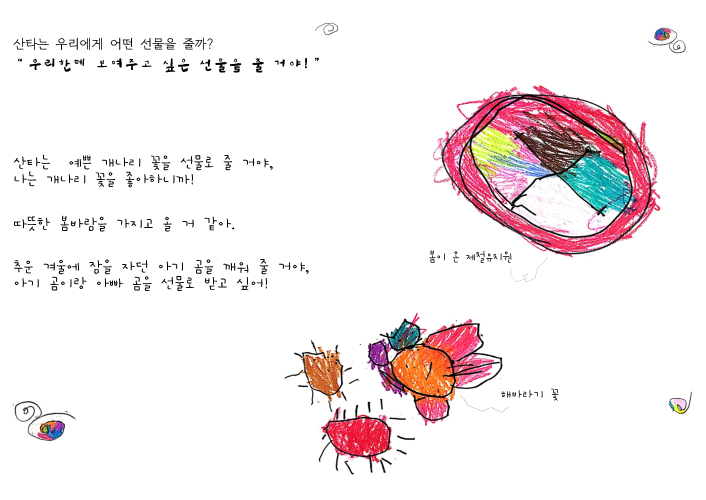 산타는 우리에게 어떤 선물을 줄까?
“ 우리한테 보여주고 싶은 선물을 줄 거야! ”
산타는 예쁜 개나리 꽃을 선물로 줄 거야,
나는 개나리 꽃을 좋아하니까!
따뜻한 봄바람을 가지고 올 거 같아.
추운 겨울에 잠을 자던 아기 곰을 깨워 줄 거야,
아기 곰이랑 아빠 곰을 선물로 받고 싶어!
봄이 온 제철유치원
해바라기 꽃